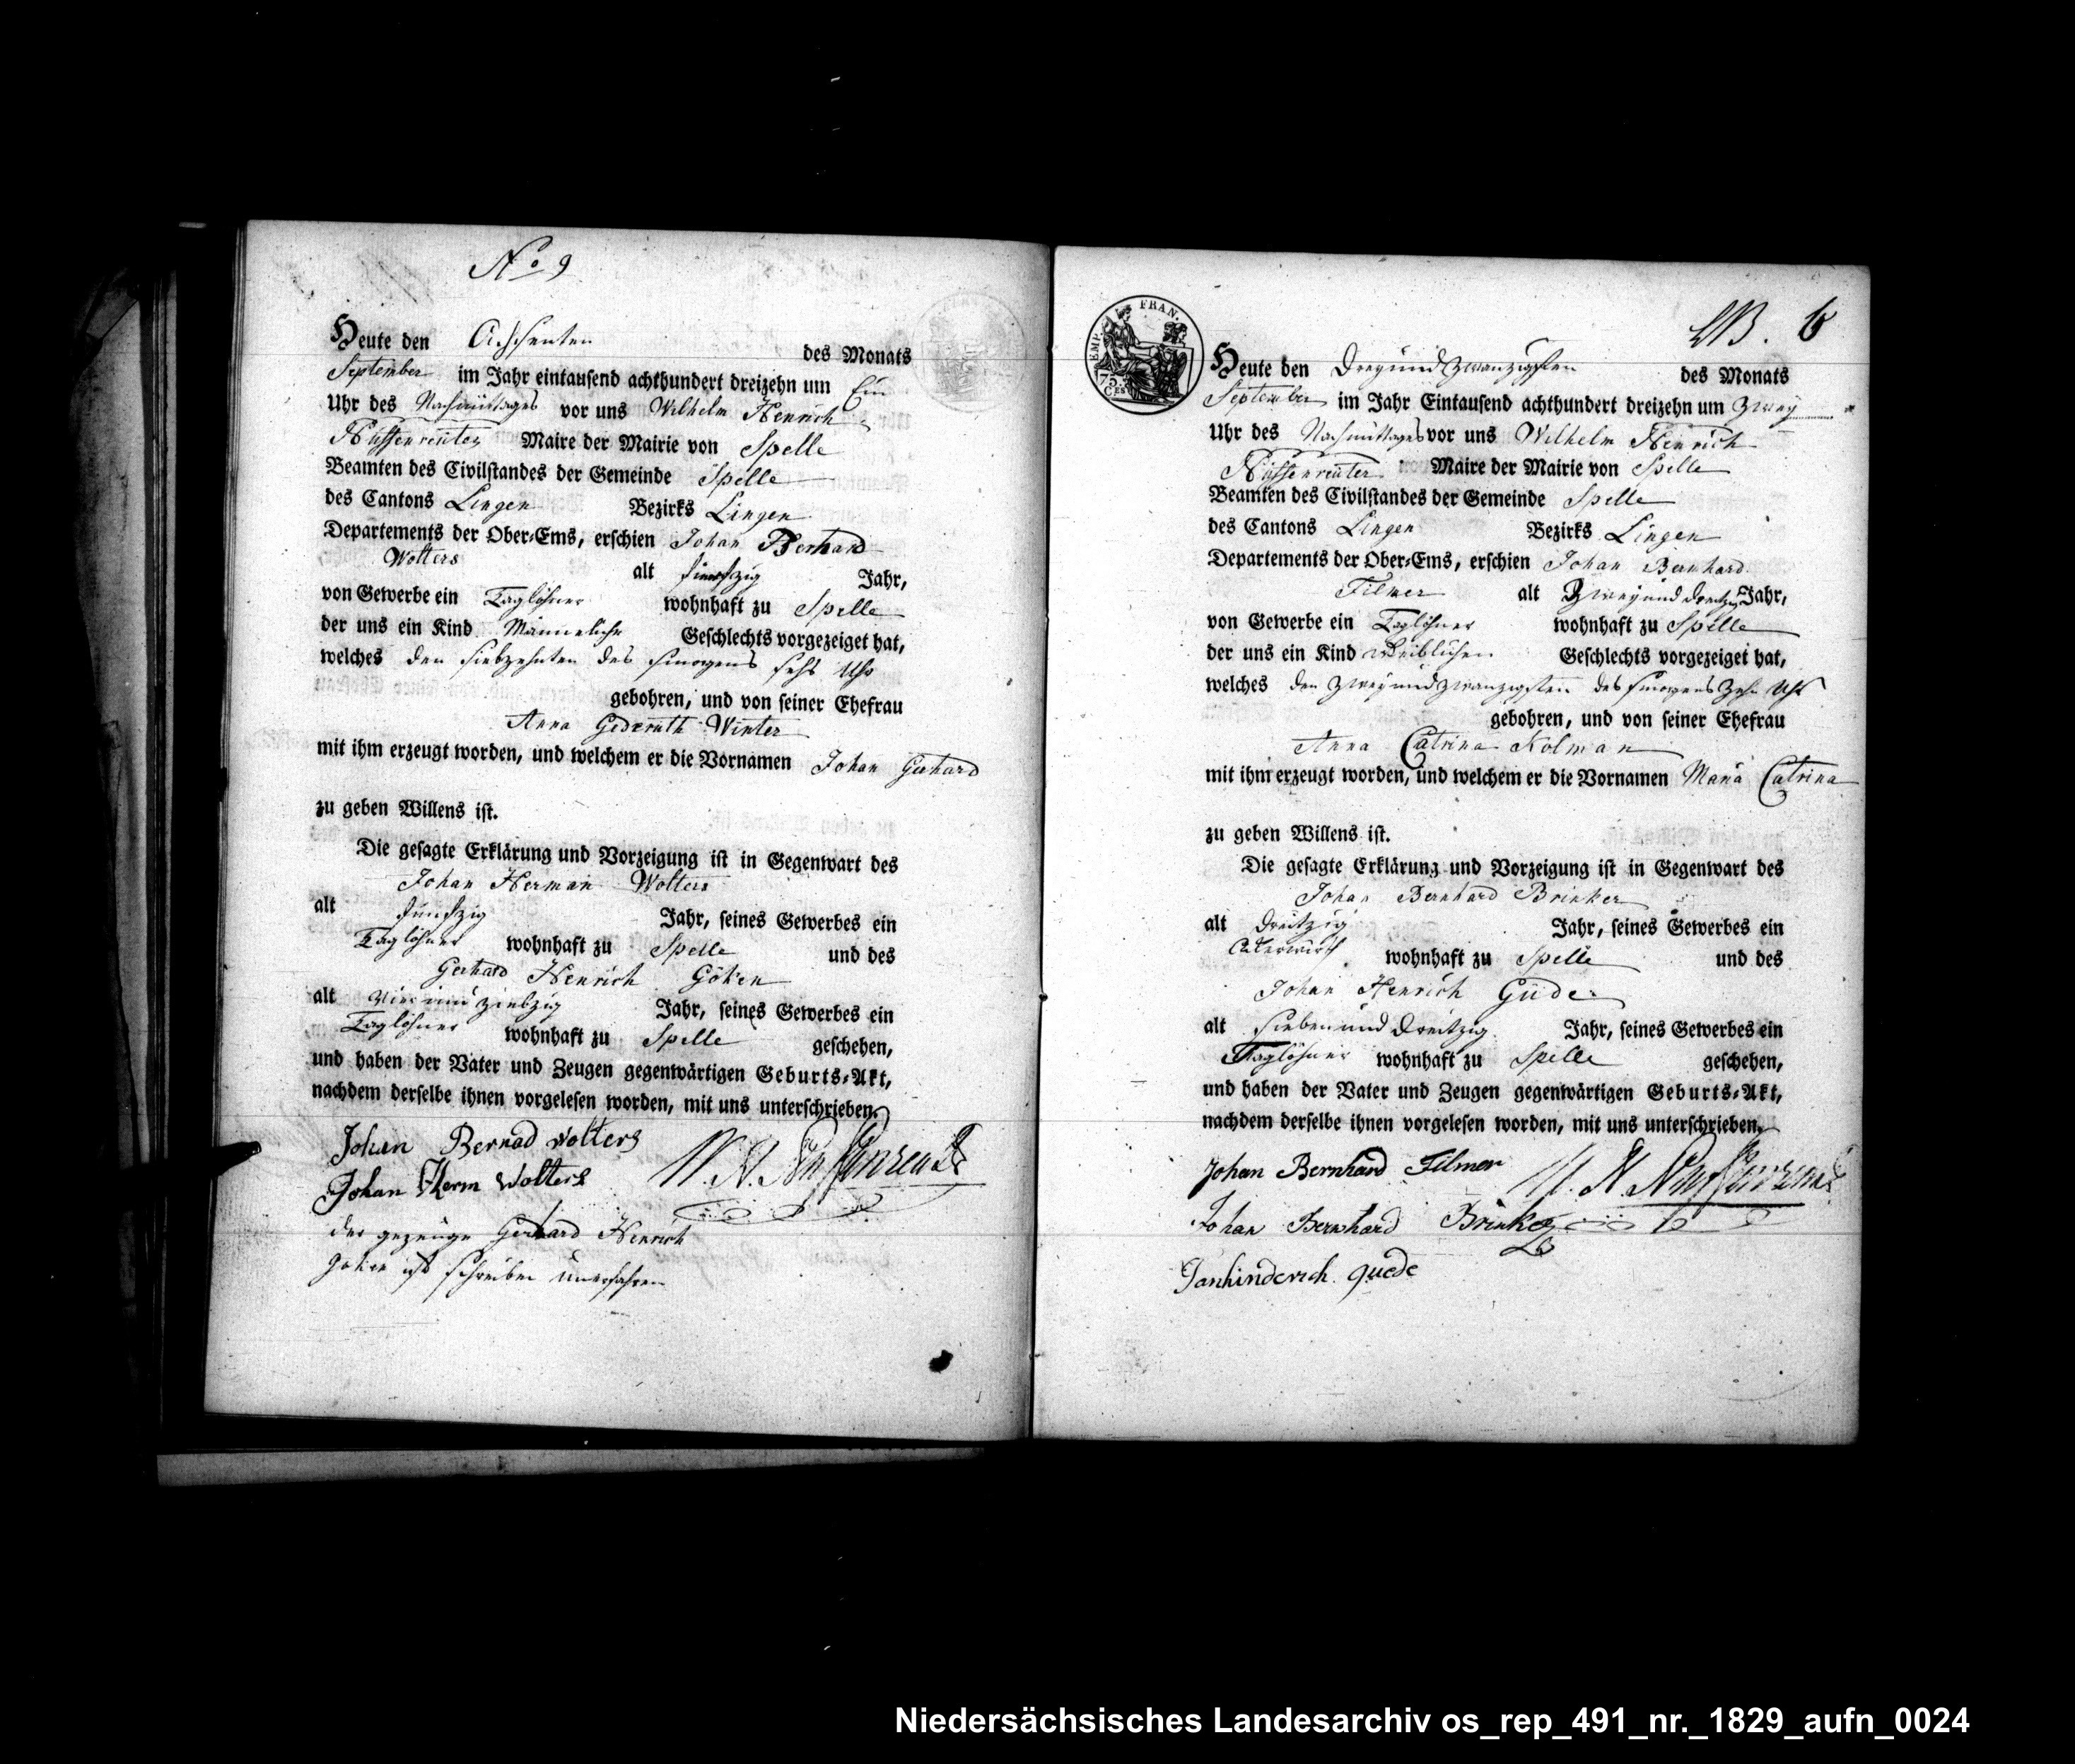 No 9
Heute den Achzenten des Monats
September im Jahr eintausend achthundert dreizehn um Ein
Uhr des Nachmittages vor uns Wilhelm Henrich
Maire der Mairie von Spelle
Beamten des Civilstandes der Gemeinde Spelle
des Cantons Lingen Bezirks Lingen
Departements der Ober-Ems, erschien Johan Bernhard
Wolters alt funfzig Jahr,
von Gewerbe ein Taglöhner wohnhaft zu Spelle
der uns ein Kind Männeliche Geschlechts vorgezeiget hat,
welches den siebzehnten des morgens sechs Uhr
gebohren, und von seiner Ehefrau
Anna Gederuth Winter
mit ihm erzeugt worden, und welchem er die Vornamen Johan Gerhard
zu geben Willens ist.
Die gesagte Erklärung und Vorzeigung ist in Gegenwart des
Johan Herman Wolters
alt funfzig Jahr, seines Gewerbes ein
Taglöhner wohnhaft zu Spelle und des
Gerhard Henrich Göken
alt Jahr, seines Gewerbes ein
Taglöhner wohnhaft zu Spelle geschehen,
und haben der Vater und Zeugen gegenwärtigen Geburts-Akt,
nachdem derselbe ihnen vorgelesen worden, mit uns unterschrieben.
Johan Bernad Wolters
Johan Herm Wolters
der gezeuge Gerhard Henrich
Goken ist schreiben unerfahren
EMP. FRAN.
75. CES
6
Heute den Dreyundzwanzigsten des Monats
September im Jahr Eintausend achthundert dreizehn um zwey
Uhr des Nachmittages vor uns Wilhelm Henrich
Maire der Mairie von Spelle
Beamten des Civilstandes der Gemeinde Spelle
des Cantons Lingen Bezirks Lingen
Departements der Ober-Ems, erschien Johan Bernhard
Filmer alt Zweyund Dreitzig Jahr,
von Gewerbe ein Taglöhner wohnhaft zu Spelle
der uns ein Kind weiblichen Geschlechts vorgezeiget hat,
welches den zweyundzwanzigsten des morgens Zehn Uhr
gebohren, und von seiner Ehefrau
Anna Catrina Kolman
mit ihm erzeugt worden, und welchem er die Vornamen Maria Catrina
zu geben Willens ist.
Die gesagte Erklärung und Vorzeigung ist in Gegenwart des
Johan Bernhard Brinker
alt Dreitzig Jahr, seines Gewerbes ein
Ackerwirth wohnhaft zu Spelle und des
Johan Henrich Güde
alt Siebenund Dreitzig Jahr, seines Gewerbes ein
Taglöhner wohnhaft zu Spelle geschehen,
und haben der Vater und Zeugen gegenwärtigen Geburts-Akt,
nachdem derselbe ihnen vorgelesen worden, mit uns unterschrieben.
Johan Bernhard Filmer
Johan Bernhard Brinker
Janhinderich quede
Niedersächsisches Landesarchiv os_rep_491_nr._1829_aufn_0024